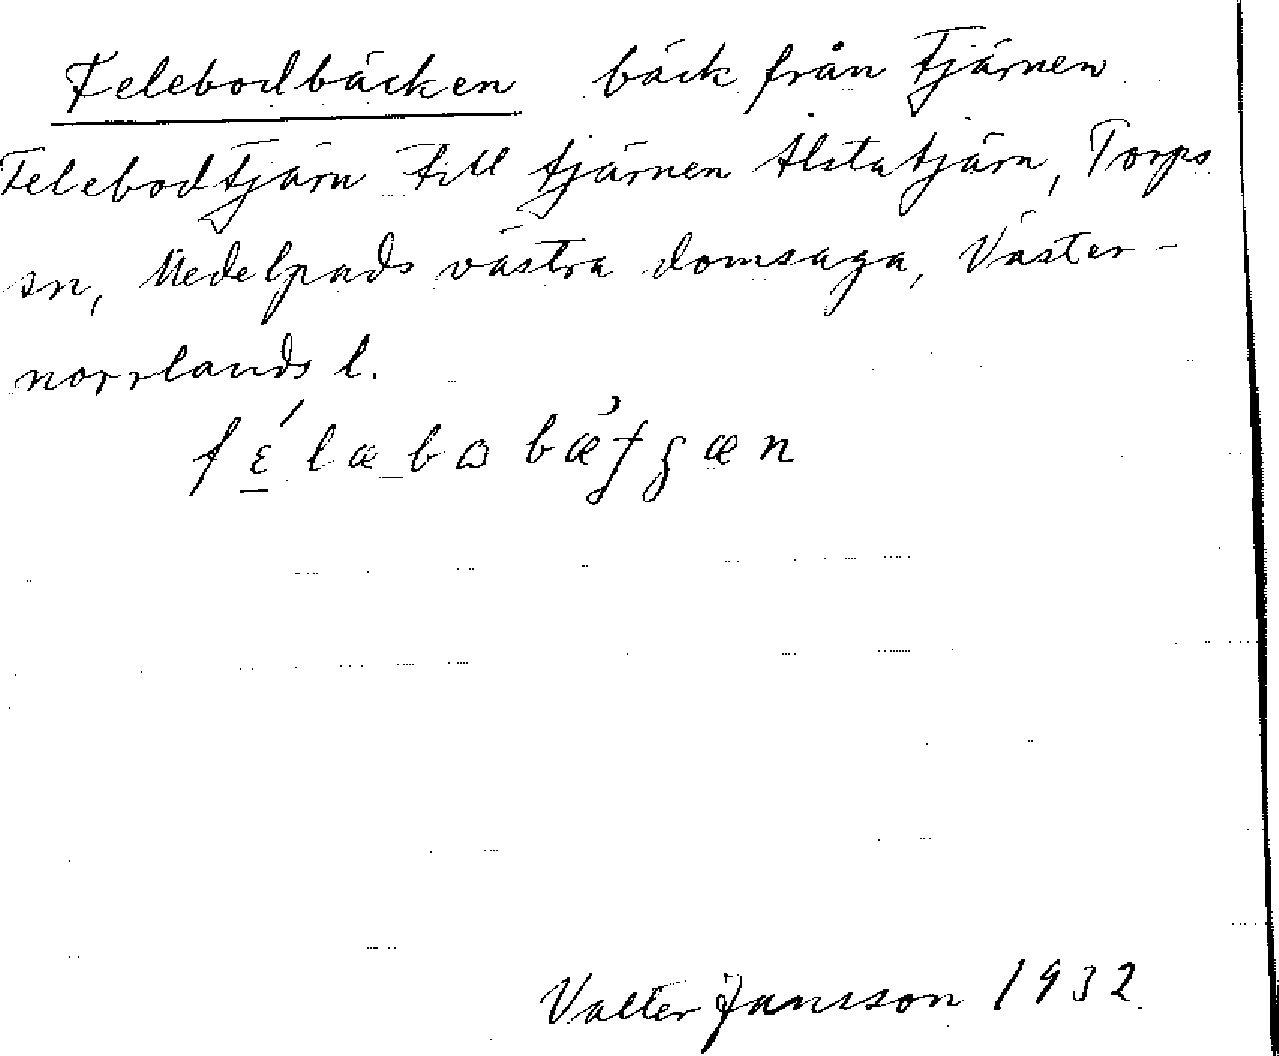 Felebodbäcken bäck från tjärnen
Felebodtjärn till tjärnen Alstatjärn, Torps
sn, Medelpads västra domsaga, Väster-
norrlands l.
Valter Jansson 1932